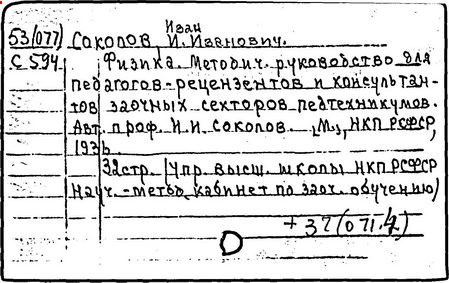 53(077) Соколов, Иван
И. Иванович.
С 594 Физика. Методич. руководство для
педагогов-рецензентов и консультан-
тов заочных секторов педтехникумов.
Авт. проф. И. И. Соколов. М., НКП РСФСР,
193
32стр. (Упр. высш. школы НКП РСФСР
Науч.-метод. кабинет по заоч. обучению)
+ 37(071.4)